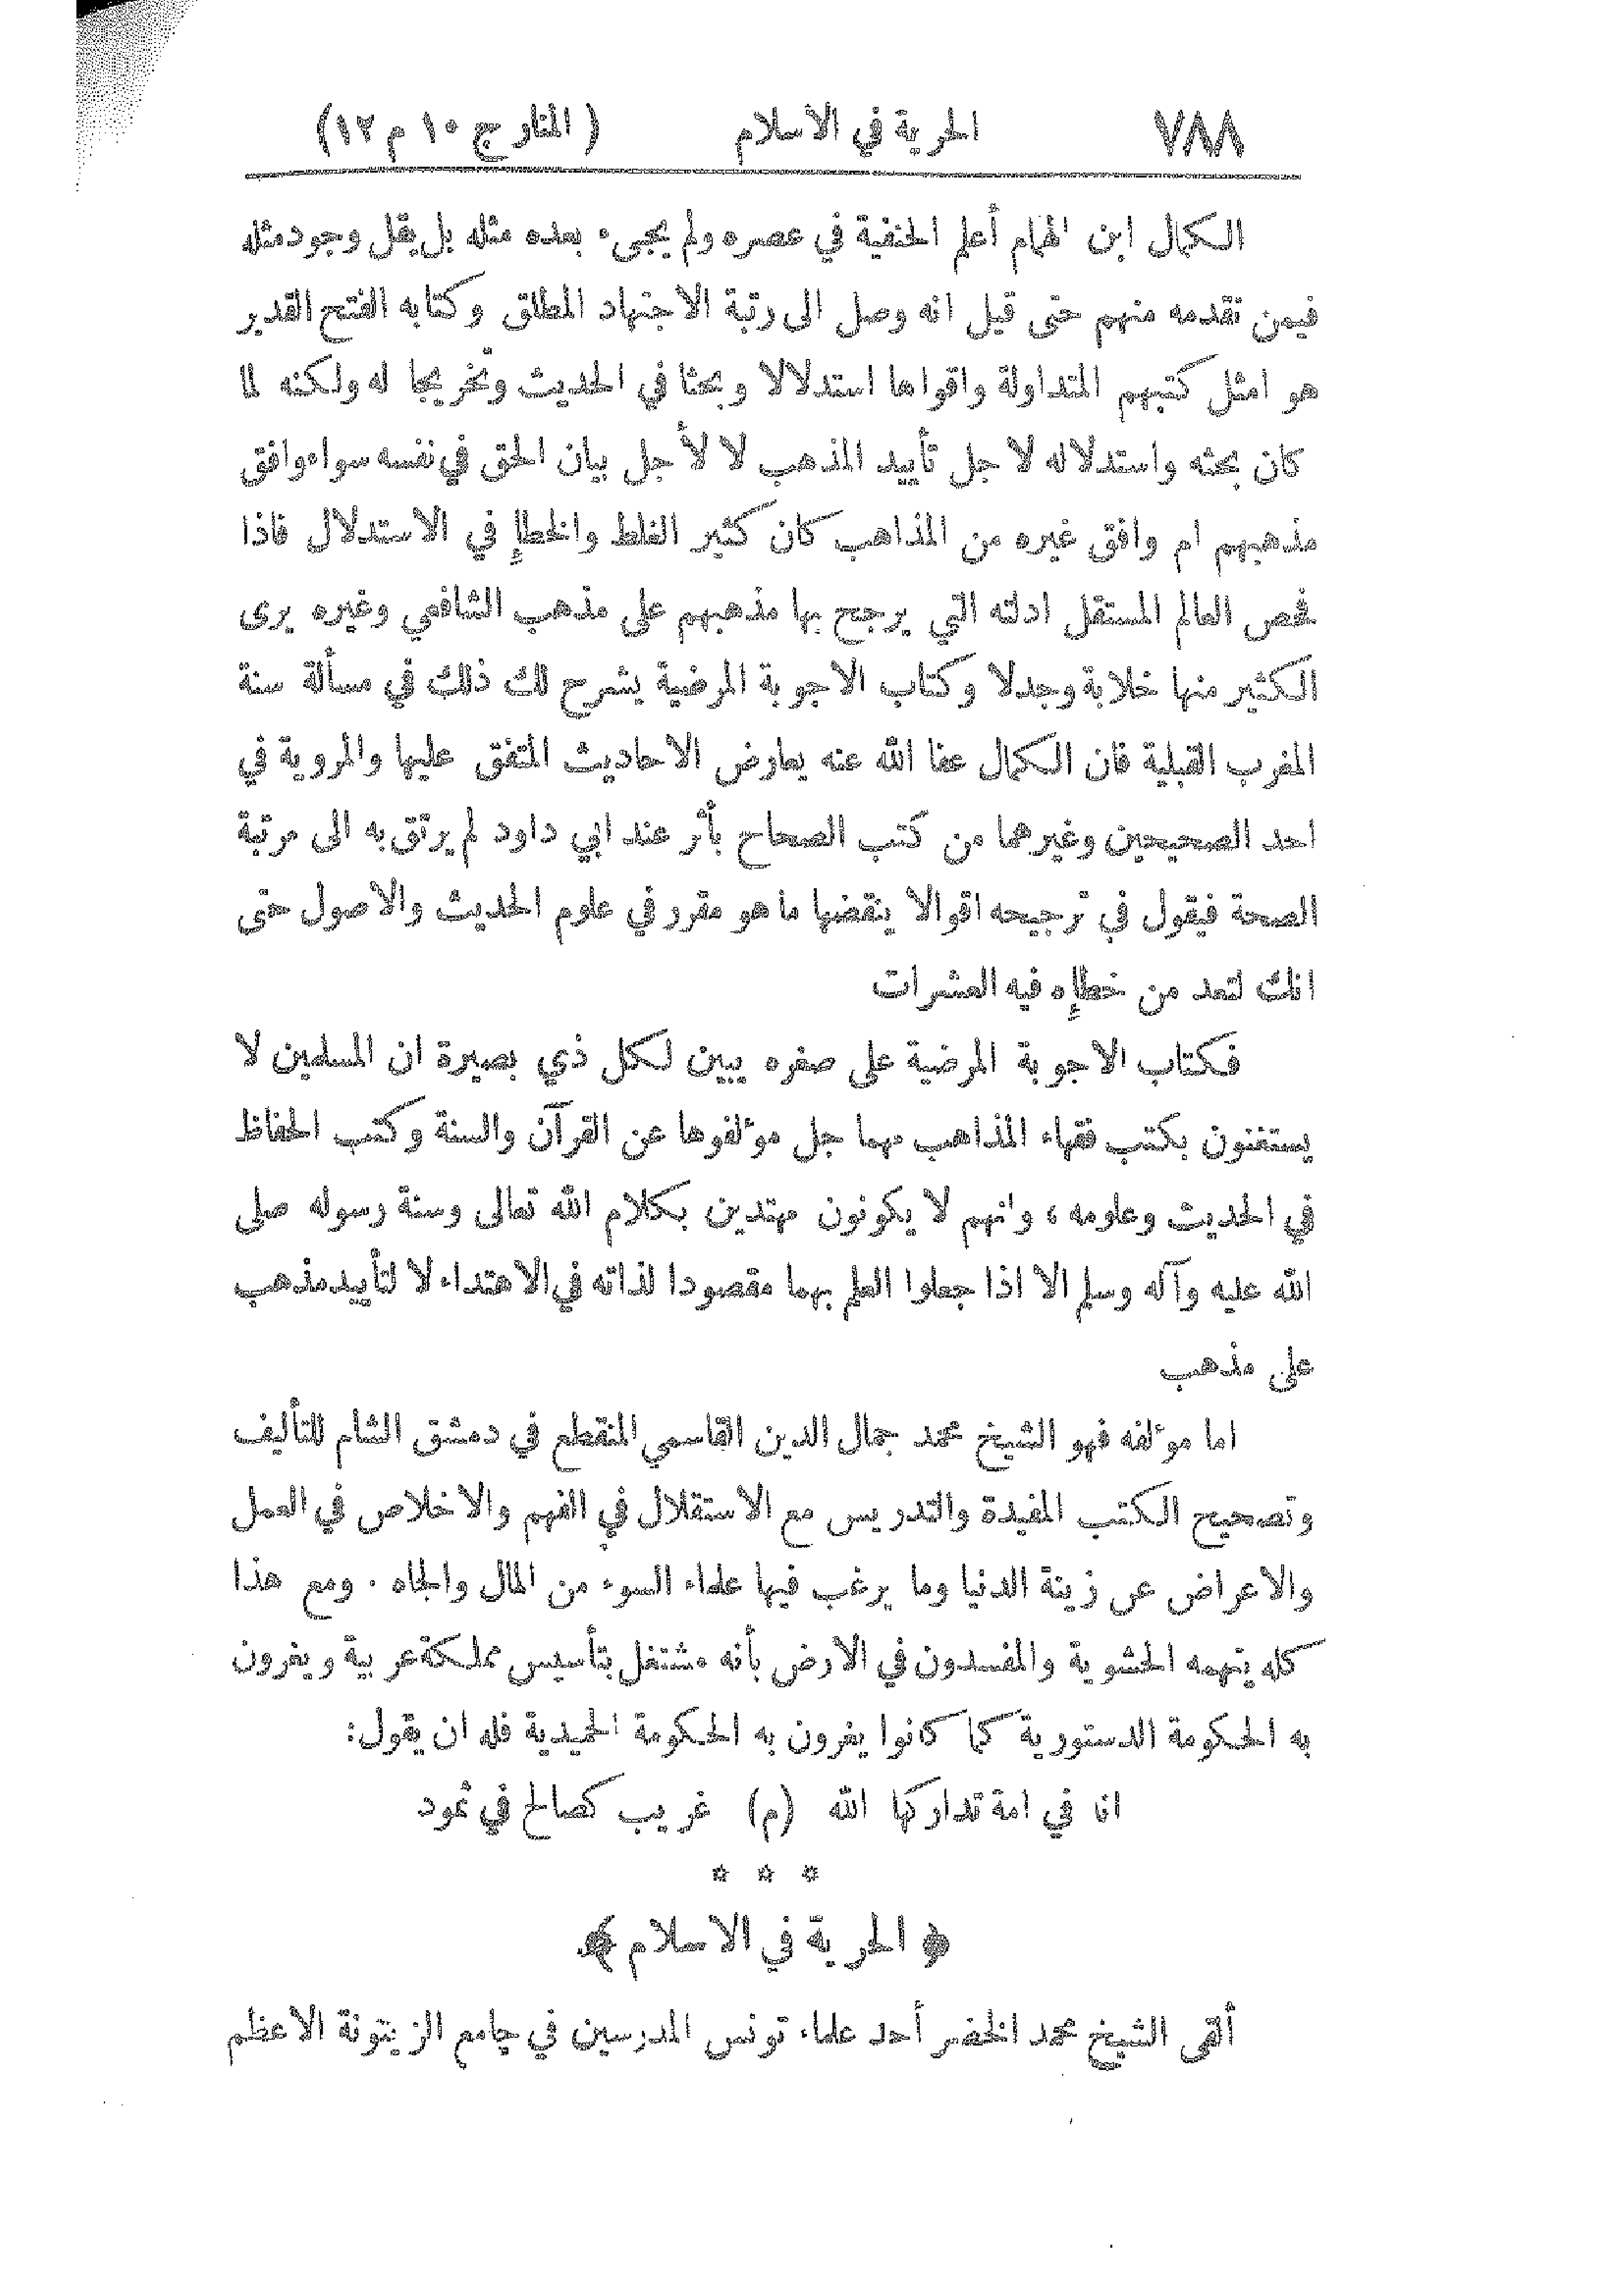 ٧٨٨ الحرية في الاسلام (المنار ج ١٠ م ١٢)
الكمال ابن الهمام أعلم الحنفية في عصره ولم يجيء بعده مثله بل يقل وجود مثله
فيمن تقدمه منهم حتى قيل انه وصل الى رتبة الاجتهاد المطلق وكتابه الفتح القدير
هو امثل كتبهم المتداولة واقواها استدلالا وبحثا في الحديث وتخريجا له ولكنه لما
كان بحثه واستدلاله لاجل تأييد المذهب لا لأجل بيان الحق في نفسه سواء وافق
مذهبهم ام وافق غيره من المذاهب كان كثير الغلط والخطإ في الاستدلال فاذا
فحص العالم المستقل ادلته التي يرجح بها مذهبهم على مذهب الشافعي وغيره يرى
الكثير منها خلابة وجدلا وكتاب الاجوبة المرضية يشرح لك ذلك في مسألة سنة
المغرب القبلية فان الكمال عفا الله عنه يعارض الاحاديث المتفق عليها والمروية في
احد الصحيحين وغيرهما من كتب الصحاح بأثر عند ابي داود لم يرتق به الى مرتبة
الصحة فيقول في ترجيحه اقوالا ينقضها ما هو مقرر في علوم الحديث والاصول حتى
انك لتعد من خطإه فيه العشرات
فكتاب الاجوبة المرضية على صغره يبين لكل ذي بصيرة ان المسلمين لا
يستغنون بكتب فقهاء المذاهب مهما جل مؤلفوها عن القرآن والسنة وكتب الحفاظ
في الحديث وعلومه ، وانهم لا يكونون مهتدين بكلام الله تعالى وسنة رسوله صلى
الله عليه وآله وسلم الا اذا جعلوا العلم بهما مقصودا لذاته في الاهتداء لا لتأييد مذهب
على مذهب
اما مؤلفه فهو الشيخ محمد جمال الدين القاسمي المنقطع في دمشق الشام للتأليف
وتصحيح الكتب المفيدة والتدريس مع الاستقلال في الفهم والاخلاص في العمل
والاعراض عن زينة الدنيا وما يرغب فيها علماء السوء من المال والجاه . ومع هذا
كله يتهمه الحشوية والمفسدون في الارض بأنه مشتغل بتأسيس مملكة عربية ويغرون
به الحكومة الدستورية كما كانوا يغرون به الحكومة الحميدية فله ان يقول:
انا في امة تداركها الله (م) غريب كصالح في ثمود
* * *
﴿ الحرية في الاسلام ﴾
ألقى الشيخ محمد الخضر أحد علماء تونس المدرسين في جامع الزيتونة الاعظم